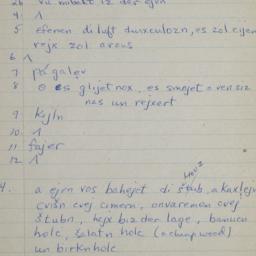 2b vu nibakt iz der ejen
4. 1
5 efenen di luft durxculozn, es zol cijen
rejx zol arous
6 1
7 pagaler
8 es glijet nox, es smojet oven siz
nas un rejxert
9 kijln
10. 1
11 fajer
12. 1
hojz
4. a ejen vos bahejct di štub, a kaxlejn
cvišn cvej cimern, onvaremen cvej
štubn, hejx biz der lage, banucn
holc, šalatn holc (a cheap wood)
un birknholc